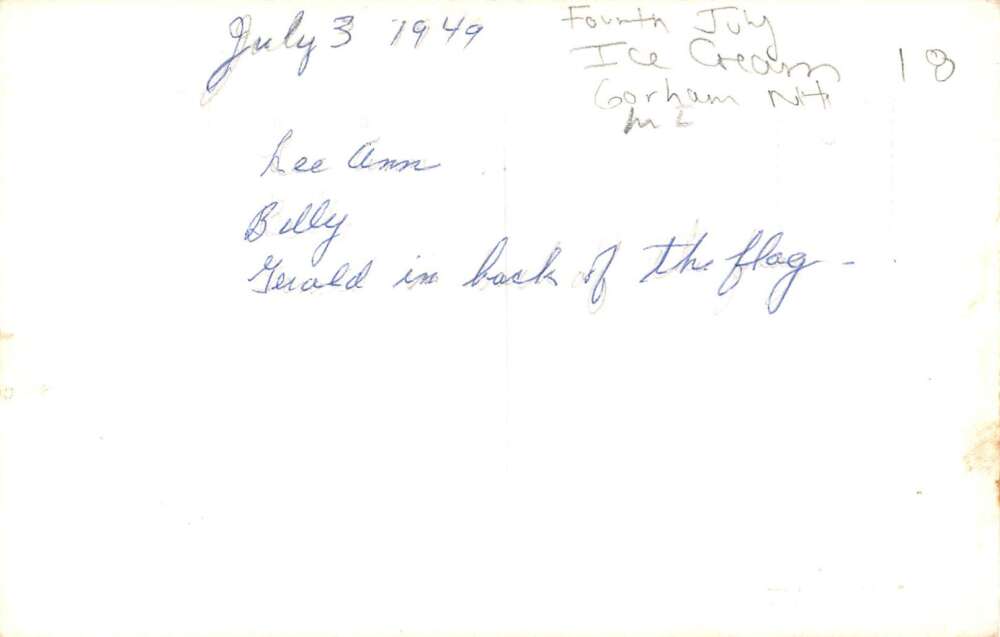 July 3 1949
Fourth July
Ice Cream 18
Gorham NH
ML
Lee Ann
Billy
Gerald in back of the flag -